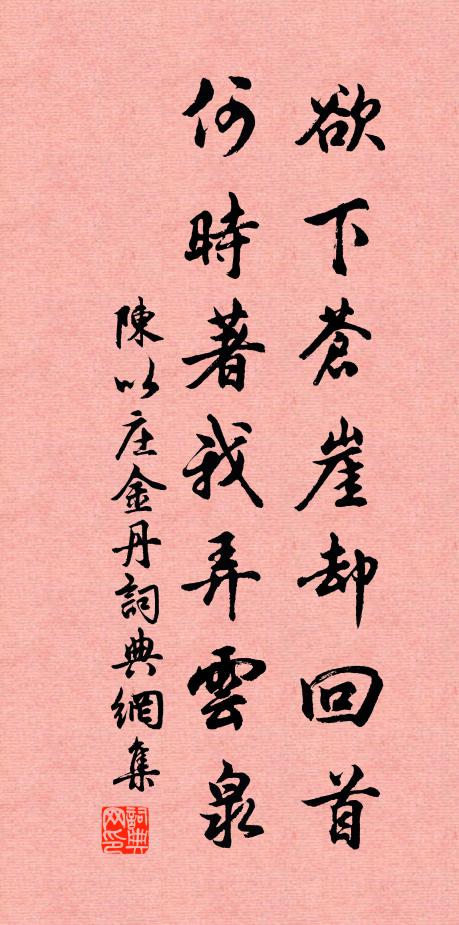 欲下蒼崖却回首
何時著我弄雲泉
陳以庄金丹詞典網集
詞典
网印